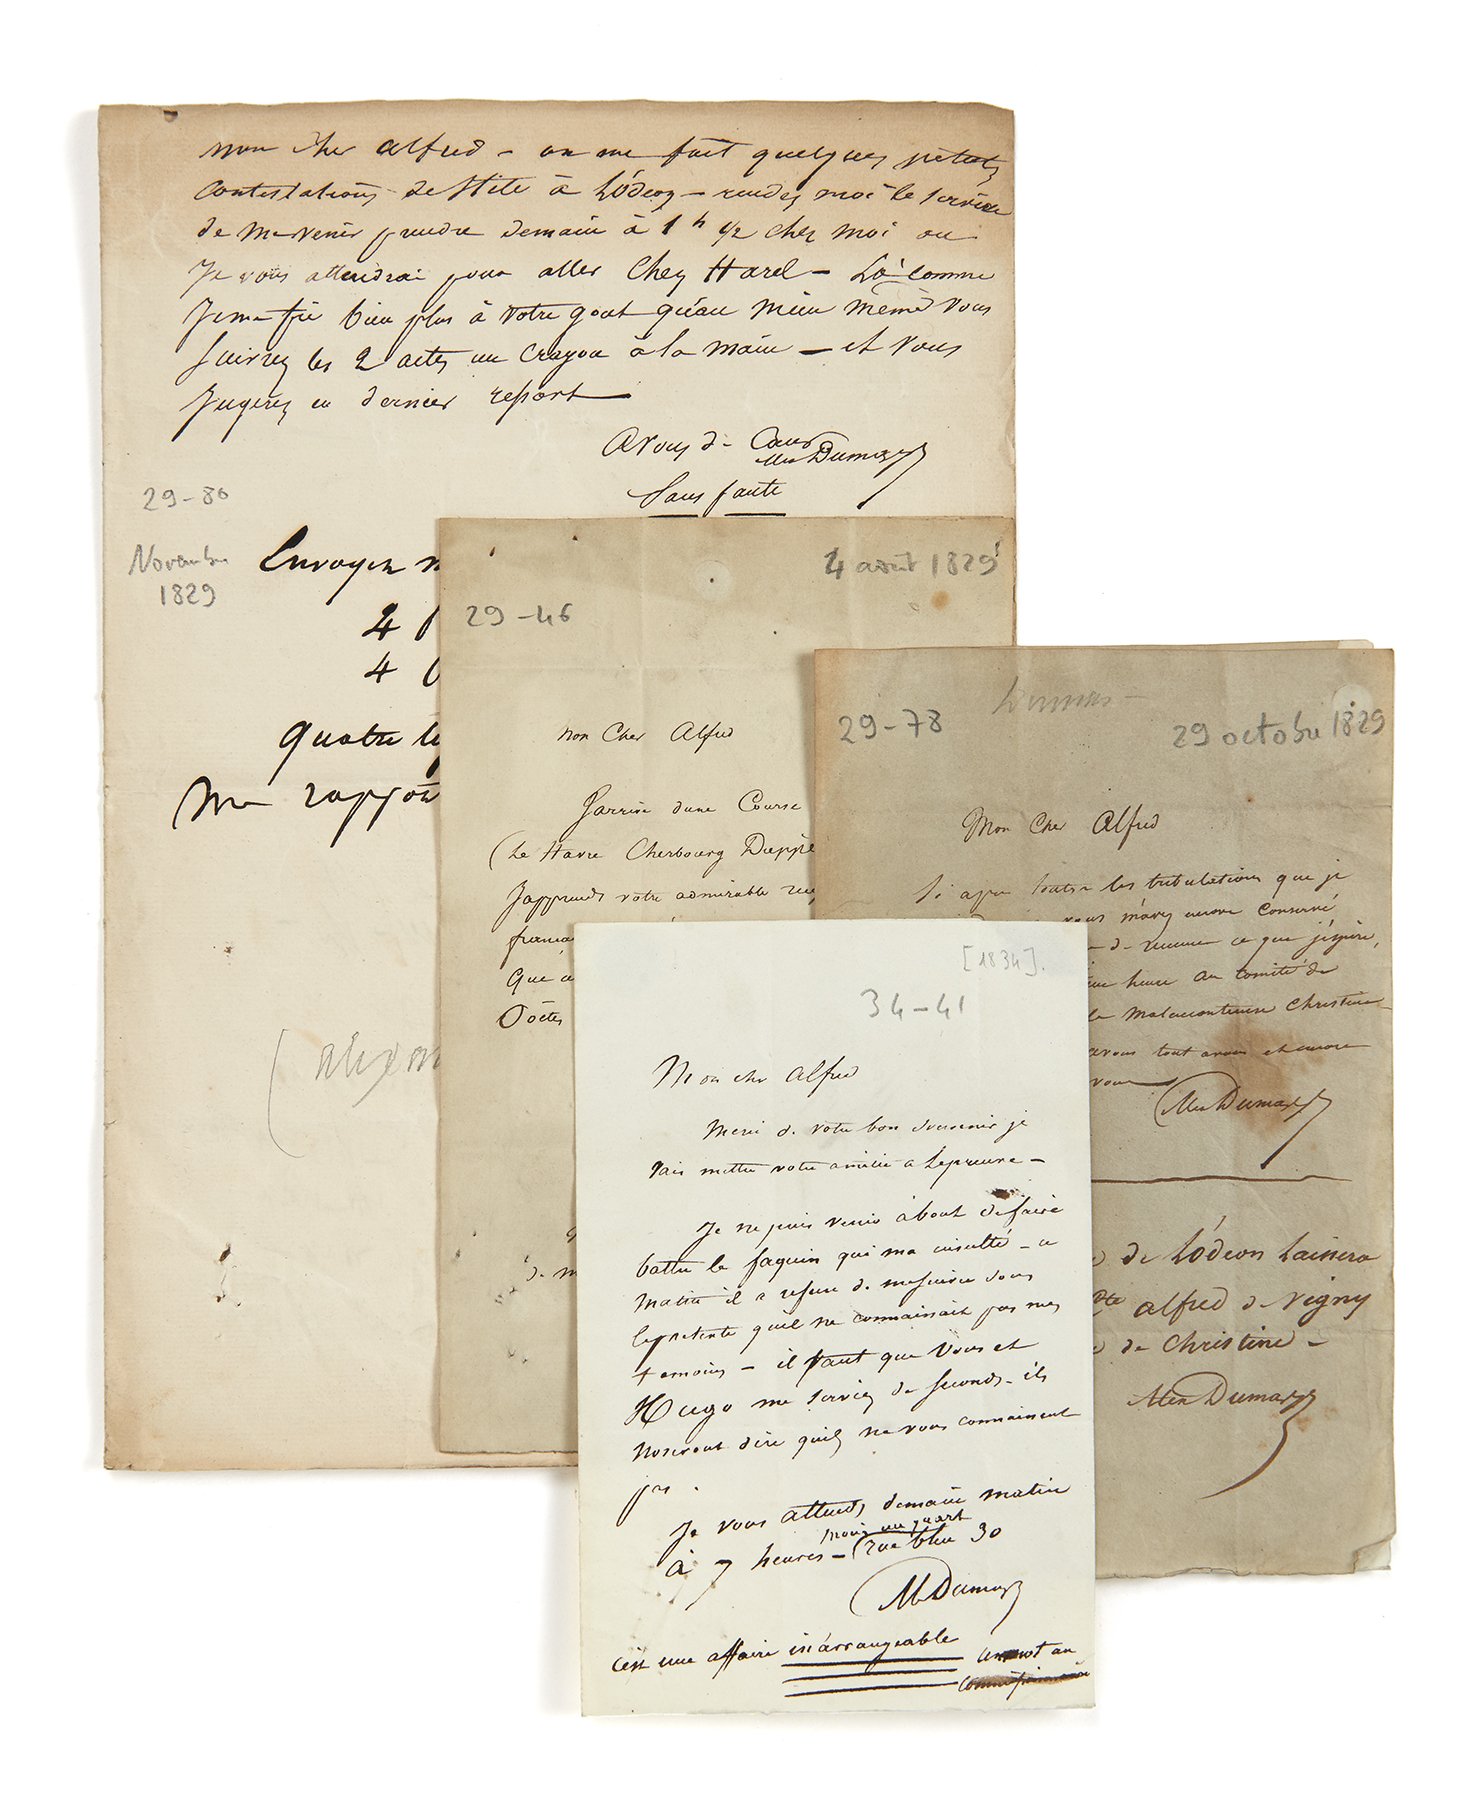 mon cher alfred – on me fait quelques petites
contestations de stile à Lódeon – rendez moi le service
de me venir prendre demain à 1 h 1/2 chez moi ou
Je vous attendrai pour aller chez Harel – Là comme
Je me fie bien plus à votre gout qu'au mien même vous
suivrez les 2 actes un crayon à la main – et vous
Jugerez en dernier ressort
A vous de Cœur
Alex Dumas
Sans faute
29-80
Novembre
1829
Envoyez m
4
4
Quatre
Me rappor
(alexan
4 août 1829
29-46
Mon Cher Alfred
J'arrive dune Course
(Le Havre Cherbourg Dieppe
J'apprends votre admirable
françai
Que
Poëtes
de m
Dumas –
29-78
29 octobre 1829
Mon Cher Alfred
Si apres toutes les tribulations que je
vous m'avez encore conservé
de ce que j'espere,
heure au comité de
la malencontreuse Christine
a vous tout avous et encore
vous
Alex Dumas
de Lódeon Laissera
alfred de Vigny
de Christine –
Alex Dumas
[1834].
34-41
Mon cher alfred
Merci de votre bon souvenir je
vais mettre votre amitié a Lepreuve –
Je ne puis venir àbout de faire
battre le faquin qui ma insulté – ce
matin il a refusé de mesuivre sous
lepretexte quil ne connaissait pas mes
temoins – il faut que Vous et
Hugo me serviez de seconds – ils
noseront dire quils ne vous connaissent
pas.
Je vous attends demain matin
à 7 heures moins un quart – (rue bleu 30
Alex Dumas
C'est une affaire inarrangeable
un mot au
commissionnaire